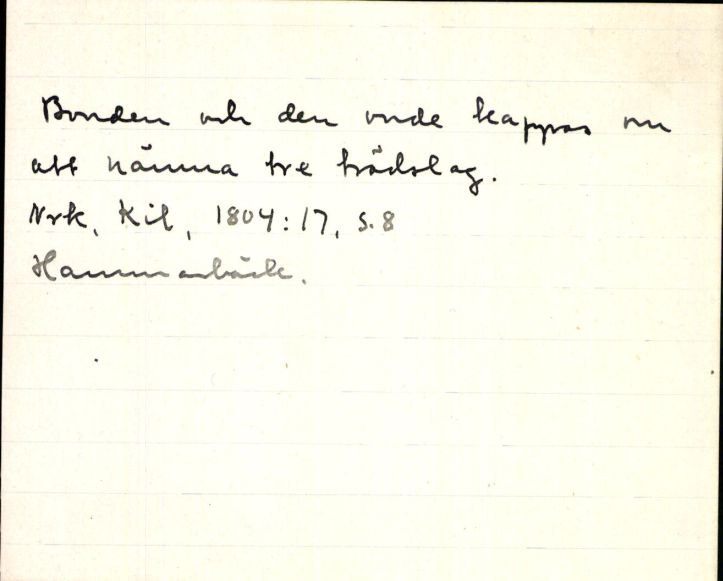 Bonden och den onde kappas om
att nämna tre trädslag.
Nrk, Kil, 1804:17, s.8
Hammarbäck.